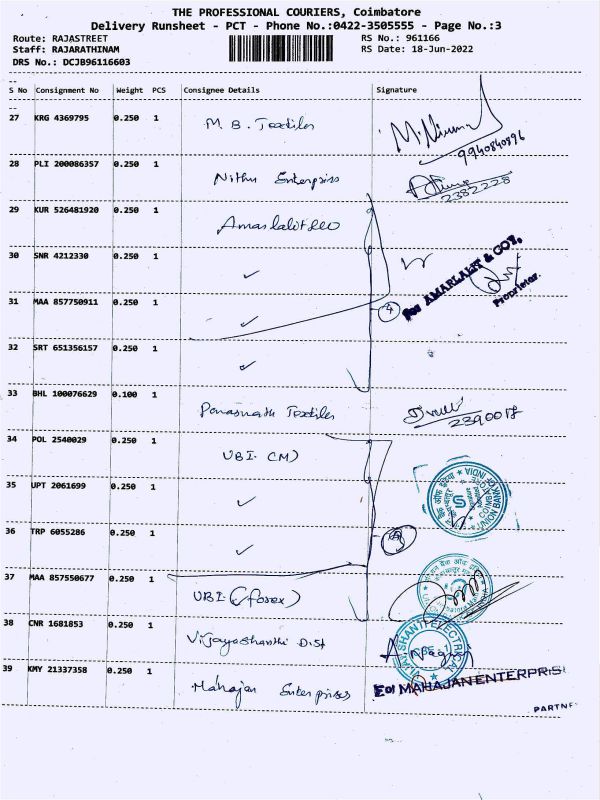 THE PROFESSIONAL COURIERS, Coimbatore
Delivery Runsheet - PCT - Phone No.:0422-3505555 - Page No.:3
Route: RAJASTREET RS No.: 961166
Staff: RAJARATHINAM RS Date: 18-Jun-2022
DRS No.: DCJB96116603
S No Consignment No Weight PCS Consignee Details Signature
27 KRG 4369795 0.250 1 M. B. Textiles
9940840896
28 PLI 200086357 0.250 1 Nithu Enterpriss
2382228
29 KUR 526481920 0.250 1
30 SNR 4212330 0.250 1 ✓
For AMARLALIT & COY.
Proprietor.
31 MAA 857750911 0.250 1 ✓
4
32 SRT 651356157 0.250 1 ✓
33 BHL 100076629 0.100 1 Textiles
2390017
34 POL 2540029 0.250 1 UBI- CM)
35 UPT 2061699 0.250 1 ✓
UNION BANK OF INDIA
COIMBATORE
36 TRP 6055286 0.250 1 ✓
37 MAA 857550677 0.250 1 UBI- (forex)
38 CNR 1681853 0.250 1 Vijayashanthi Dist
VIJAYSHANTI ELECTRICAL
39 KMY 21337358 0.250 1 Mahajan Enterprises
For MAHAJAN ENTERPRIS
PARTNE